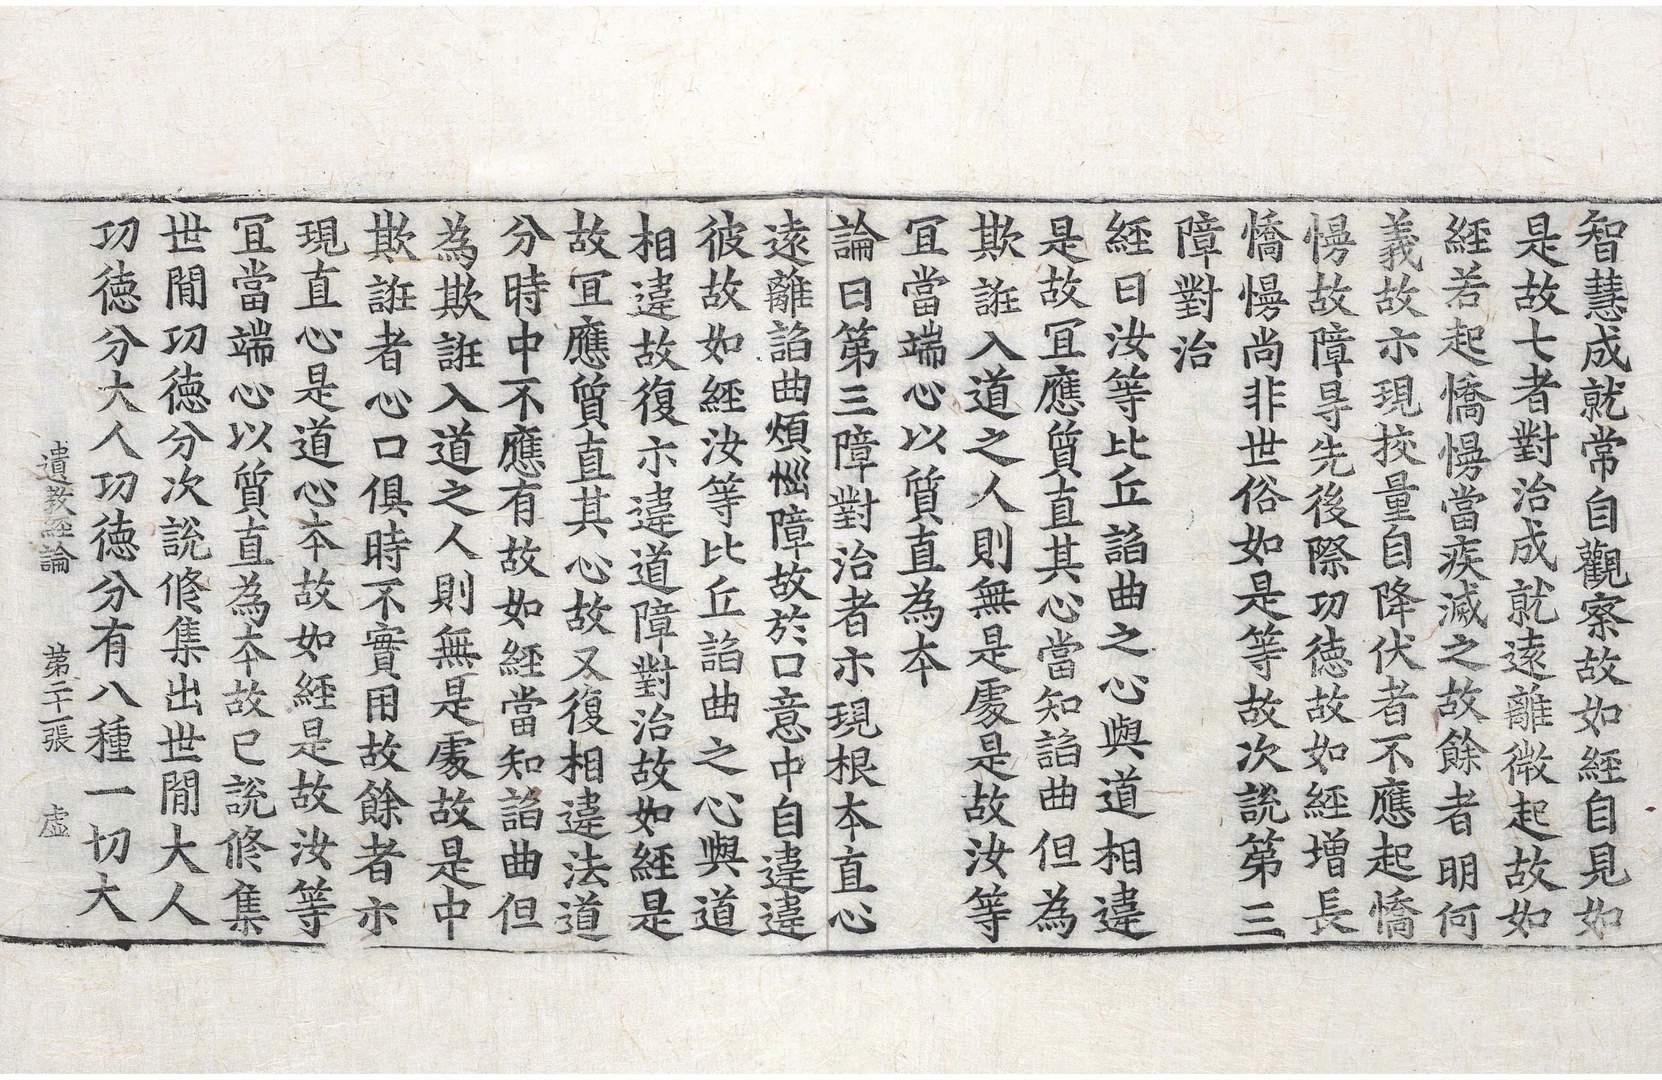 智慧成就常自觀察故如經自見如
是故七者對治成就遠離微起故如
經若起憍慢當疾滅之故餘者明何
義故示現挍量自降伏者不應起憍
慢故障㝵先後際功徳故如經增長
憍慢尚非世俗如是等故次說第三
障對治
經曰汝等比丘諂曲之心與道相違
是故冝應質直其心當知諂曲但為
欺誑入道之人則無是處是故汝等
冝當端心以質直為夲
論曰第三障對治者示現根本直心
遠離諂曲煩惱障故於口意中自違違
彼故如經汝等比丘諂曲之心與道
相違故復示違道障對治故如經是
故冝應質直其心故又復相違法道
分時中不應有故如經當知諂曲但
為欺誑入道之人則無是處故是中
欺誑者心口俱時不實用故餘者示
現直心是道心夲故如經是故汝等
冝當端心以質直為夲故已說修集
世間功徳分次說修集出世間大人
功徳分大人功徳分有八種一切大
遺教經論 第二十一張 虛